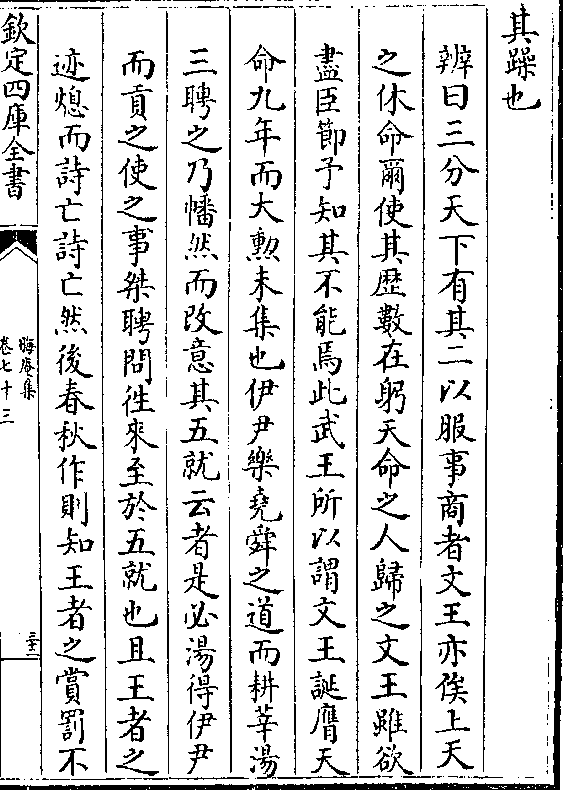 其躁也
辨曰三分天下有其二以服事商者文王亦俟上天
之休命爾使其歴數在躬天命之人歸之文王雖欲
盡臣節予知其不能焉此武王所以謂文王誕膺天
命九年而大勲未集也伊尹樂堯舜之道而耕莘湯
三聘之乃幡然而改意其五就云者是必湯得伊尹
而貢之使之事桀聘問徃來至於五就也且王者之
迹熄而詩亡詩亡然後春秋作則知王者之賞罰不
欽定四庫全書
晦庵集
卷七十三